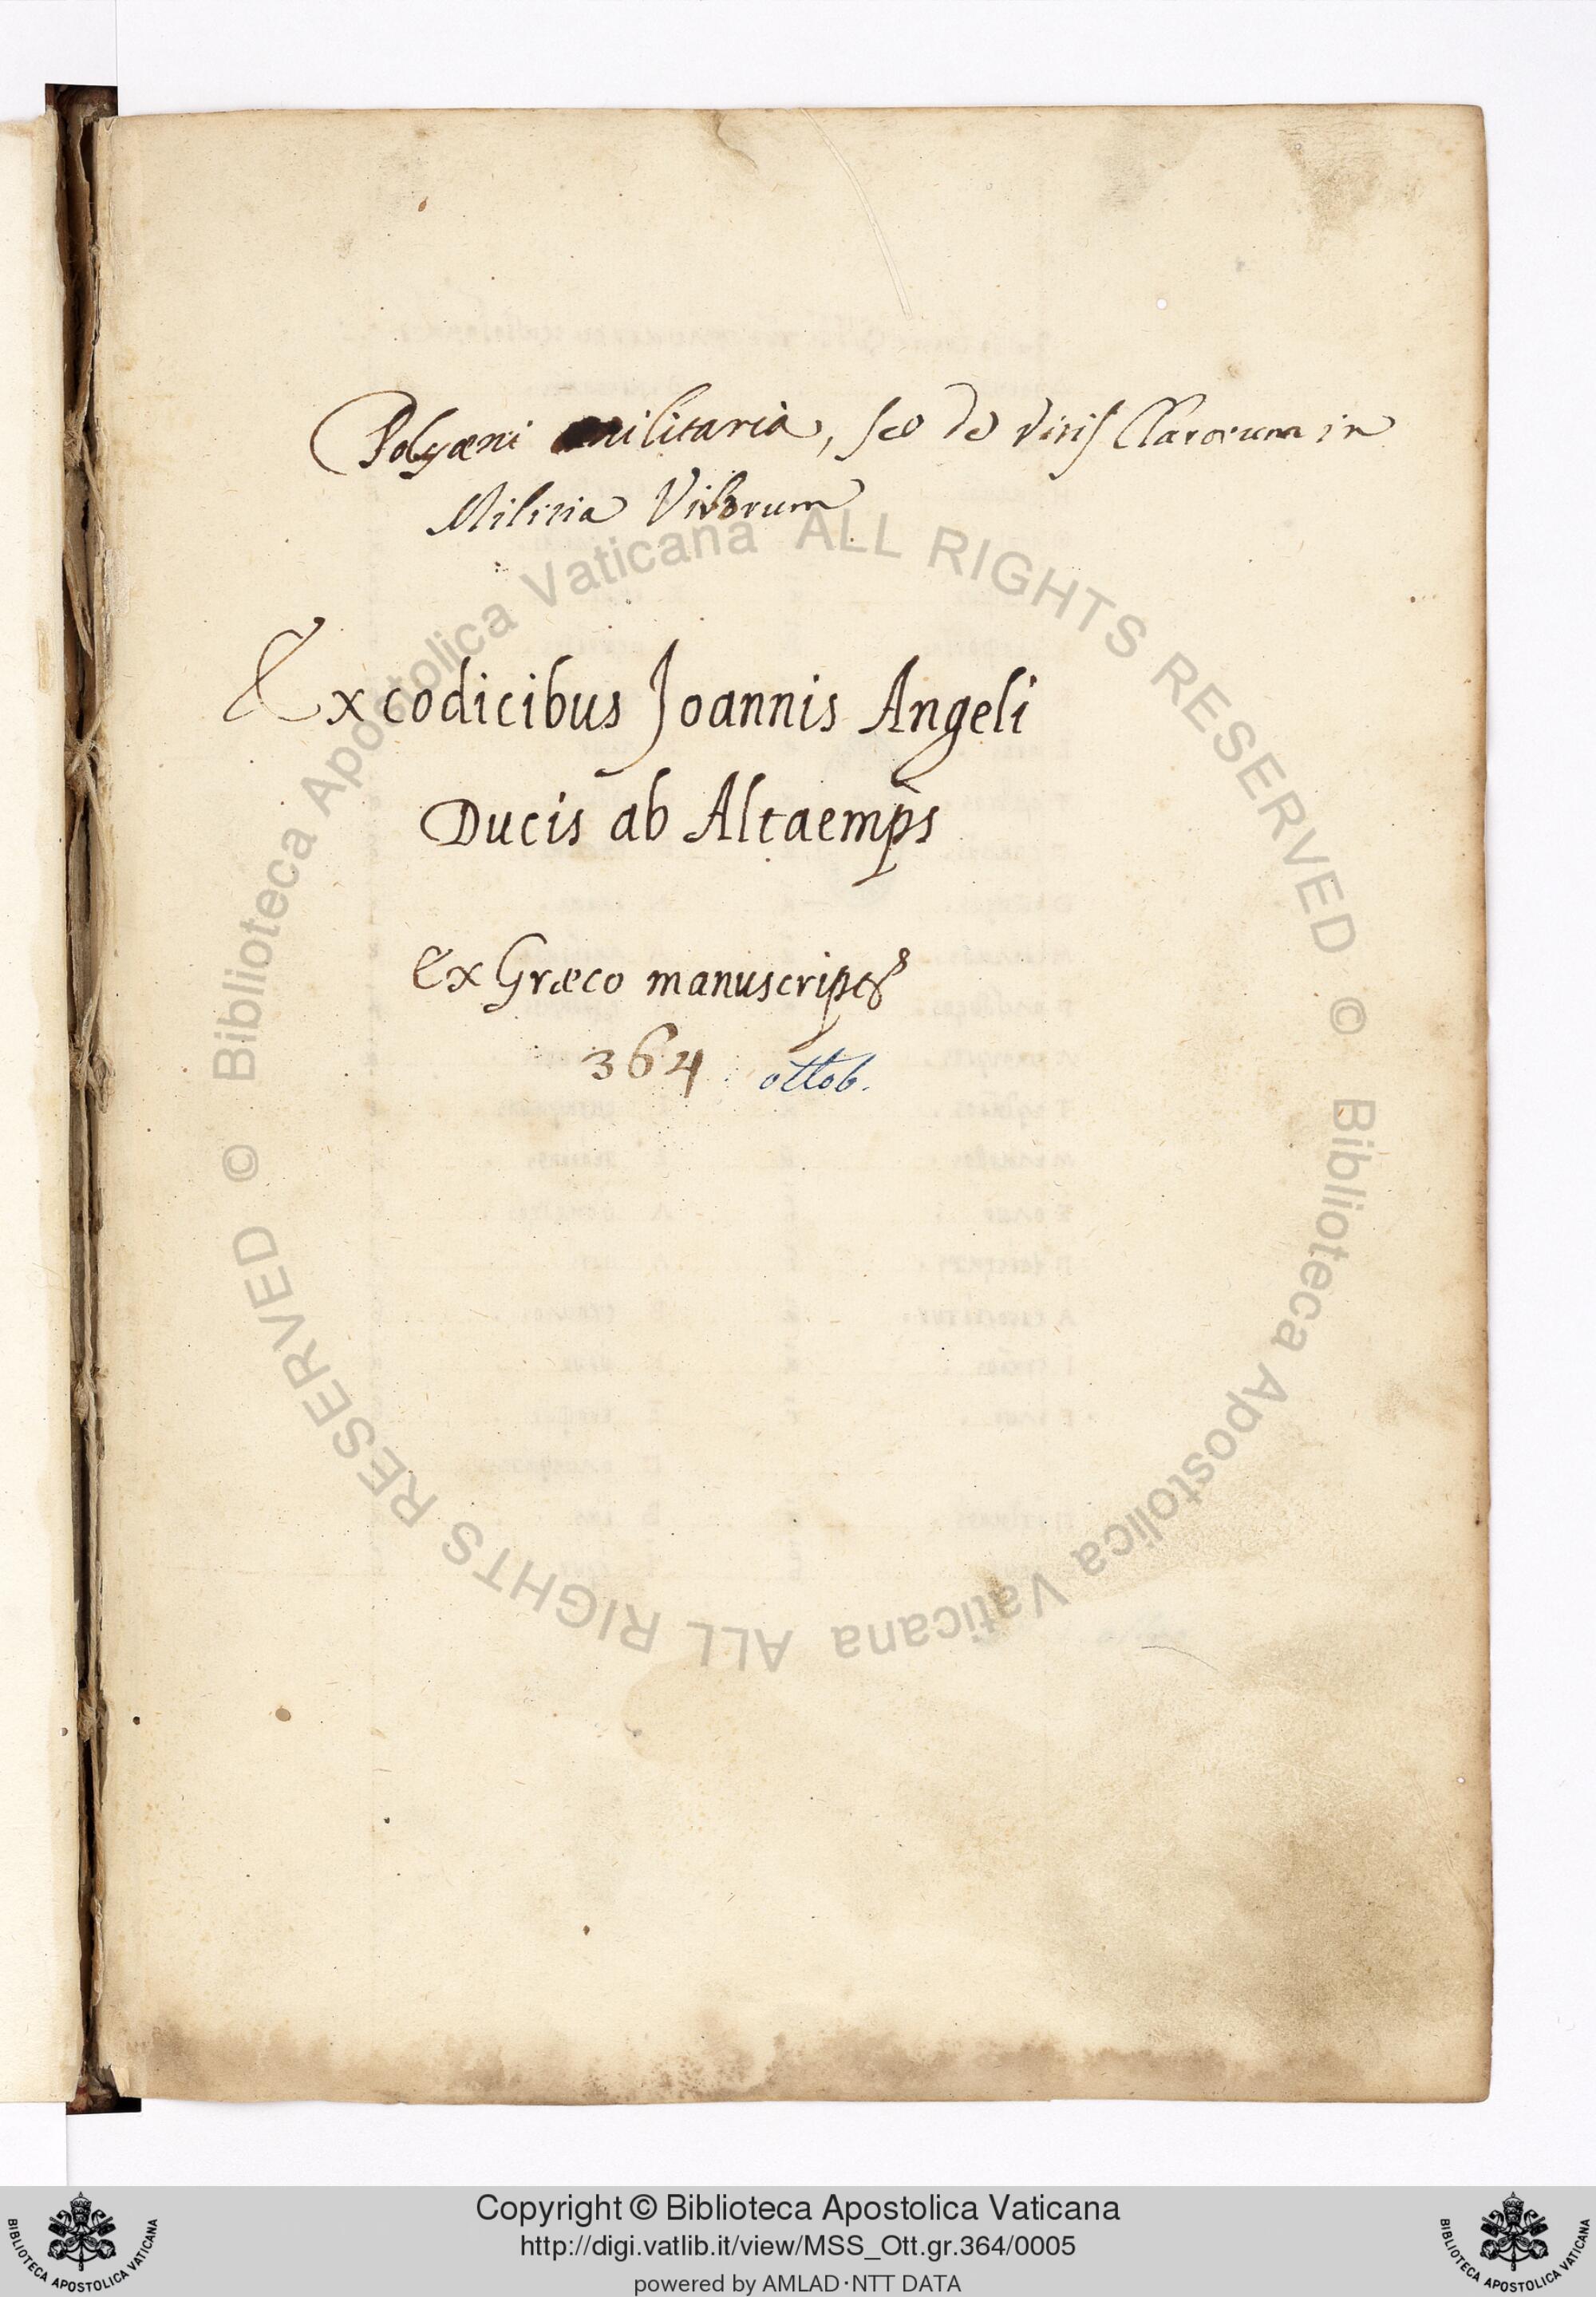 Polyæni militaria, seu de Vitis Clarorum in
Militia Virorum
Ex codicibus Joannis Angeli
Ducis ab Altaemps
Ex Græco manuscripto
364 ottob.
© Biblioteca Apostolica Vaticana ALL RIGHTS RESERVED
© Biblioteca Apostolica Vaticana ALL RIGHTS RESERVED
Copyright © Biblioteca Apostolica Vaticana
http://digi.vatlib.it/view/MSS_Ott.gr.364/0005
powered by AMLAD·NTT DATA
BIBLIOTECA APOSTOLICA VATICANA
BIBLIOTECA APOSTOLICA VATICANA